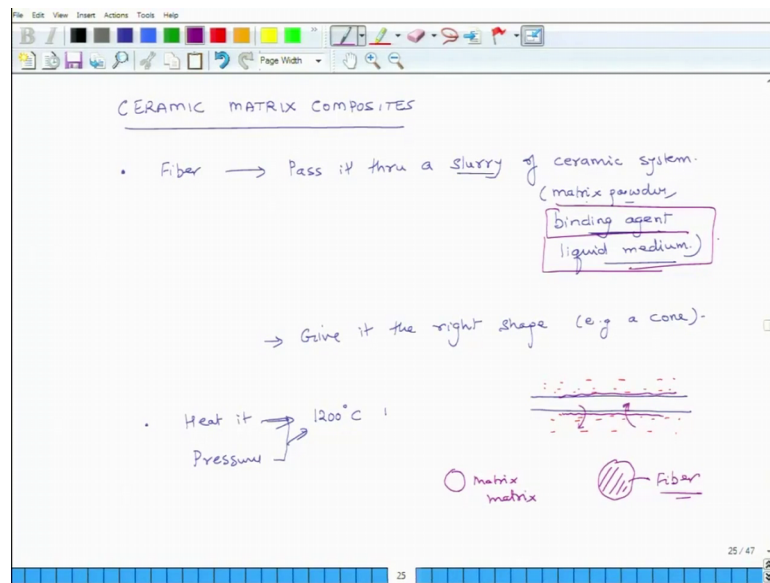 File Edit View Insert Actions Tools Help
B I
Page Width
CERAMIC MATRIX COMPOSITES
• Fiber → Pass it thru a slurry of ceramic system.
(matrix powder,
binding agent
liquid medium.)
→ Give it the right shape (e.g a cone).
• Heat it → 1200°C
Pressure
matrix
matrix
Fiber
25 / 47
25